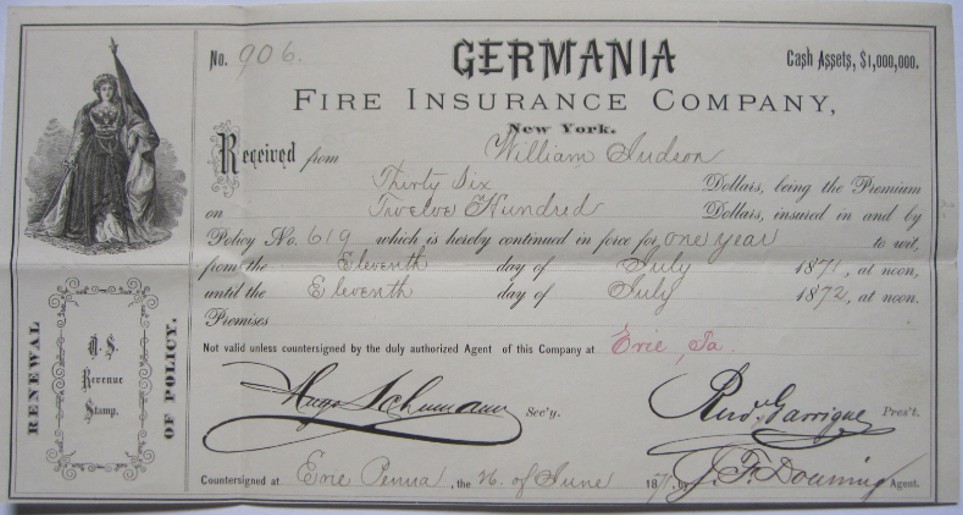 No. 906.
GERMANIA
Cash Assets, $1,000,000.
FIRE INSURANCE COMPANY,
New York.
Received from William Judson
Thirty Six Dollars, being the Premium
on Twelve Hundred Dollars, insured in and by
Policy No. 619 which is hereby continued in force for one year to wit,
from the Eleventh day of July 1871, at noon,
until the Eleventh day of July 1872, at noon.
Premises
Not valid unless countersigned by the duly authorized Agent of this Company at Erie, Pa.
Hugo Schumann Sec'y.
Rud. Garrigue Pres't.
Countersigned at Erie Penna, the of June 1871, by J. F. Downing Agent.
RENEWAL
U. S.
Revenue
Stamp.
OF POLICY.